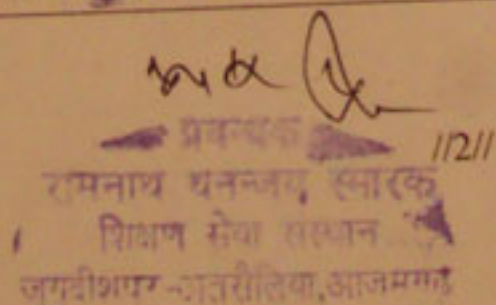 प्रबन्धक
//2//
रामनाथ धनन्जय स्मारक
शिक्षण सेवा संस्थान
जगदीशपुर-अतरौलिया, आजमगढ़